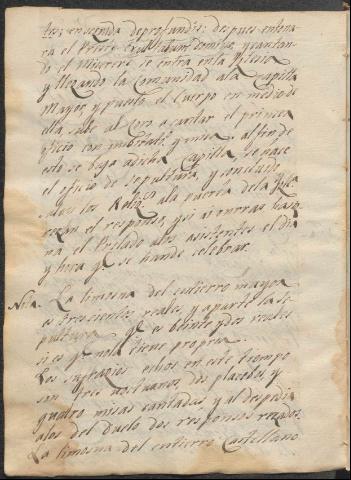 en seguida deprofundis: despues entona
ra el Preste Exultabunt domino, y cantan-
do el Miserere se entra en la Yglesia
y llegando la Comunidad ala Capilla
Mayor, y puesto el Cuerpo en medio de
ella, sube al Coro a cantar el primer
oficio con imbitato.º y misa. al fin de
esto se baja adicha Capilla, se hace
el oficio de sepultura, y concluido
salen los Relig.os ala puerta dela Ygla.
rezan el responso, y si
el dia
y hora q.e se han de celebrar.
Nota. La limosna del entierro mayor
es trescientos reales, y aparte la se-
pultura q.e es beinte y dos reales
si es q.e no la tiene propia.
Los sufragios echos en este tiempo
son tres nocturnos, dos placebos, y
quatro misas cantadas, y al despedir
alos del duelo dos responsos rezados.
La limosna del entierro Castellano